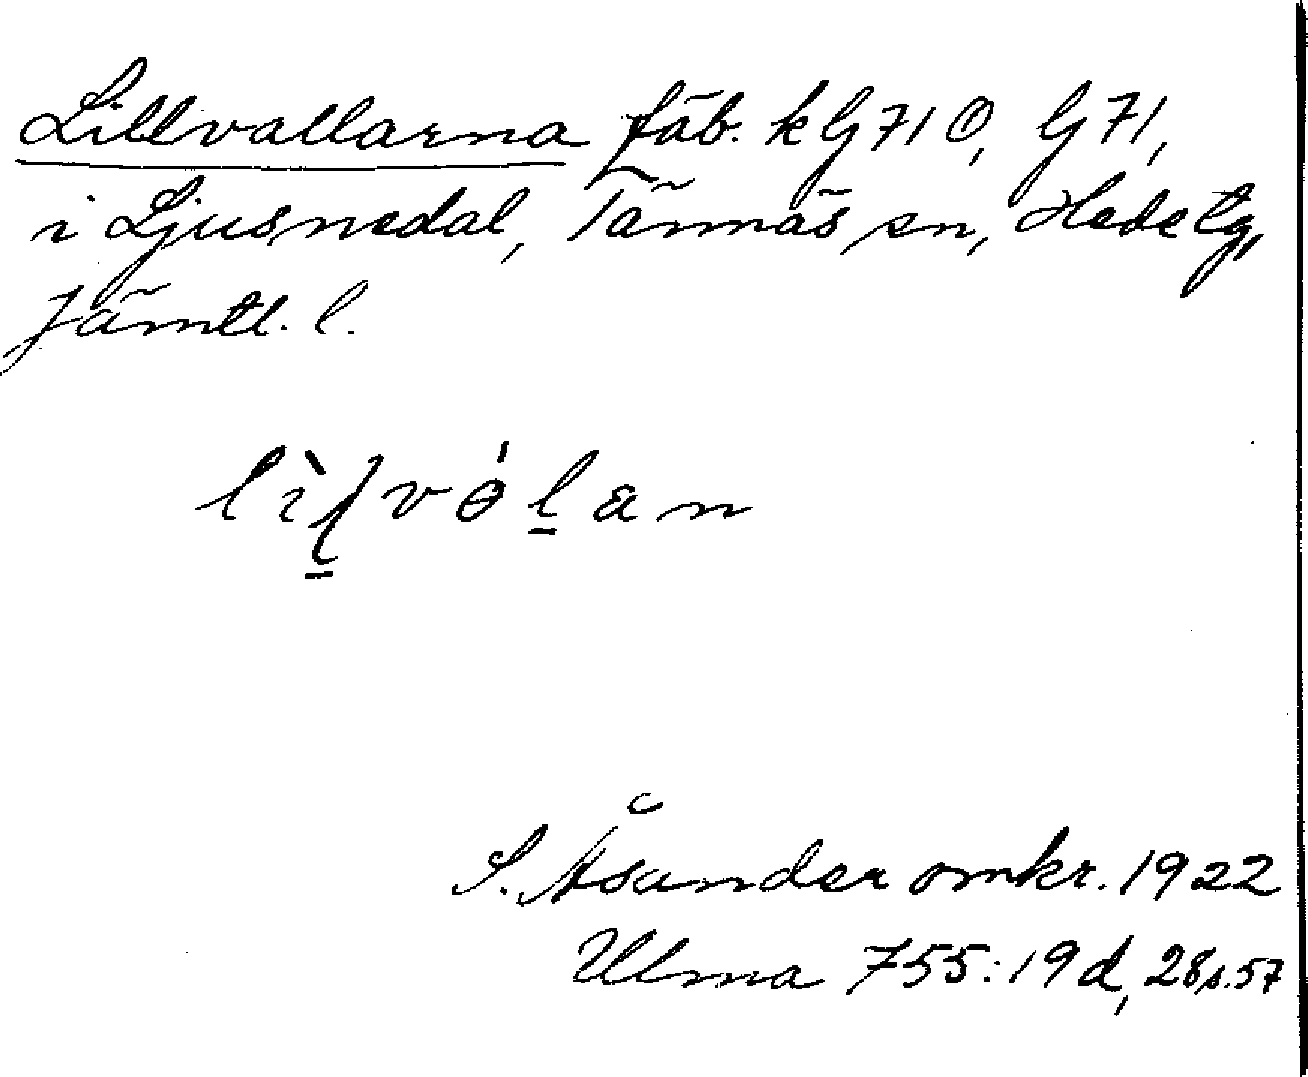 Lillvallarna fäb. k G 71 Ö, G 71,
i Ljusnedal, Tännäs sn, Hede tg,
Jämtl. l.
lìɬ̱vɵ́ḻan
S. Åsander omkr. 1922
Ulma 755: 19 d, 28 s. 57